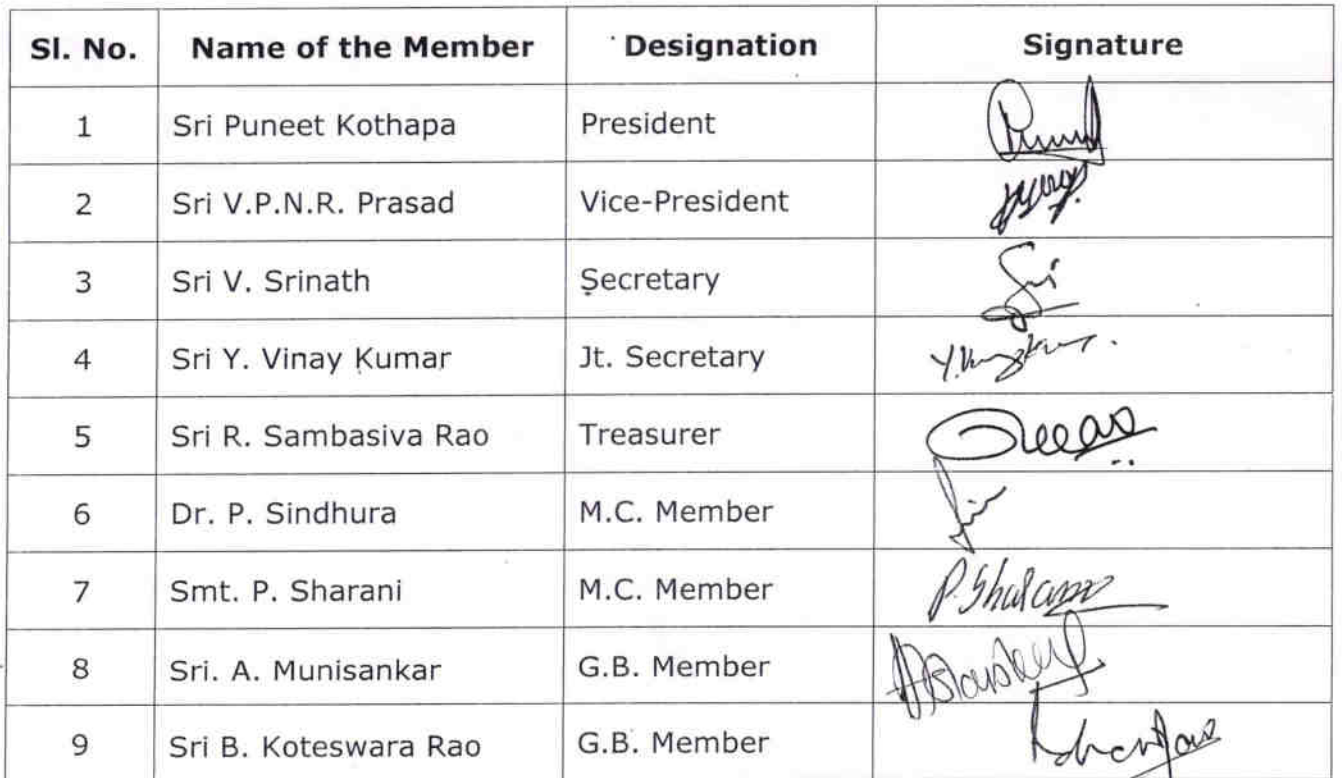 Sl. No. Name of the Member Designation Signature
1 Sri Puneet Kothapa President
2 Sri V.P.N.R. Prasad Vice-President
3 Sri V. Srinath Secretary Sri
4 Sri Y. Vinay Kumar Jt. Secretary
5 Sri R. Sambasiva Rao Treasurer
6 Dr. P. Sindhura M.C. Member
7 Smt. P. Sharani M.C. Member P. Sharani
8 Sri. A. Munisankar G.B. Member
9 Sri B. Koteswara Rao G.B. Member